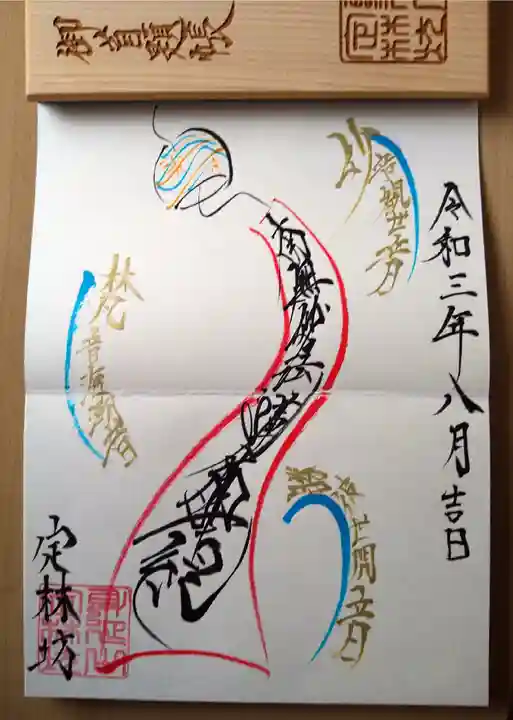 御首題帳
令和三年八月吉日
妙音観世音
南無妙法蓮華経
梵音海潮音
勝彼世間音
定林坊